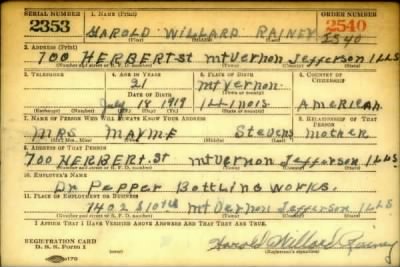 SERIAL NUMBER 1. NAME (Print) ORDER NUMBER
2353 HAROLD WILLARD RAINEY 2540
2540
(First) (Middle) (Last)
2. ADDRESS (Print)
700 HERBERT St Mt Vernon Jefferson ILLS
(Number and street or R. F. D. number) (Town) (County) (State)
3. TELEPHONE 4. AGE IN YEARS 5. PLACE OF BIRTH 6. COUNTRY OF CITIZENSHIP
21 Mt Vernon
DATE OF BIRTH (Town or county)
July 18 1919 ILLINOIS American
(Exchange) (Number) (Mo.) (Day) (Yr.) (State or country)
7. NAME OF PERSON WHO WILL ALWAYS KNOW YOUR ADDRESS 8. RELATIONSHIP OF THAT PERSON
MRS MAYME Stevens Mother
(Mr., Mrs., Miss) (First) (Middle) (Last)
9. ADDRESS OF THAT PERSON
700 HERBERT. St Mt Vernon Jefferson ILLS
(Number and street or R. F. D. number) (Town) (County) (State)
10. EMPLOYER'S NAME
Dr Pepper Bottling Works.
11. PLACE OF EMPLOYMENT OR BUSINESS
1402 S 10th Mt Vernon Jefferson ILLS
(Number and street or R. F. D. number) (Town) (County) (State)
I AFFIRM THAT I HAVE VERIFIED ABOVE ANSWERS AND THAT THEY ARE TRUE.
REGISTRATION CARD
D. S. S. Form 1 Harold Willard Rainey
(Registrant's signature)